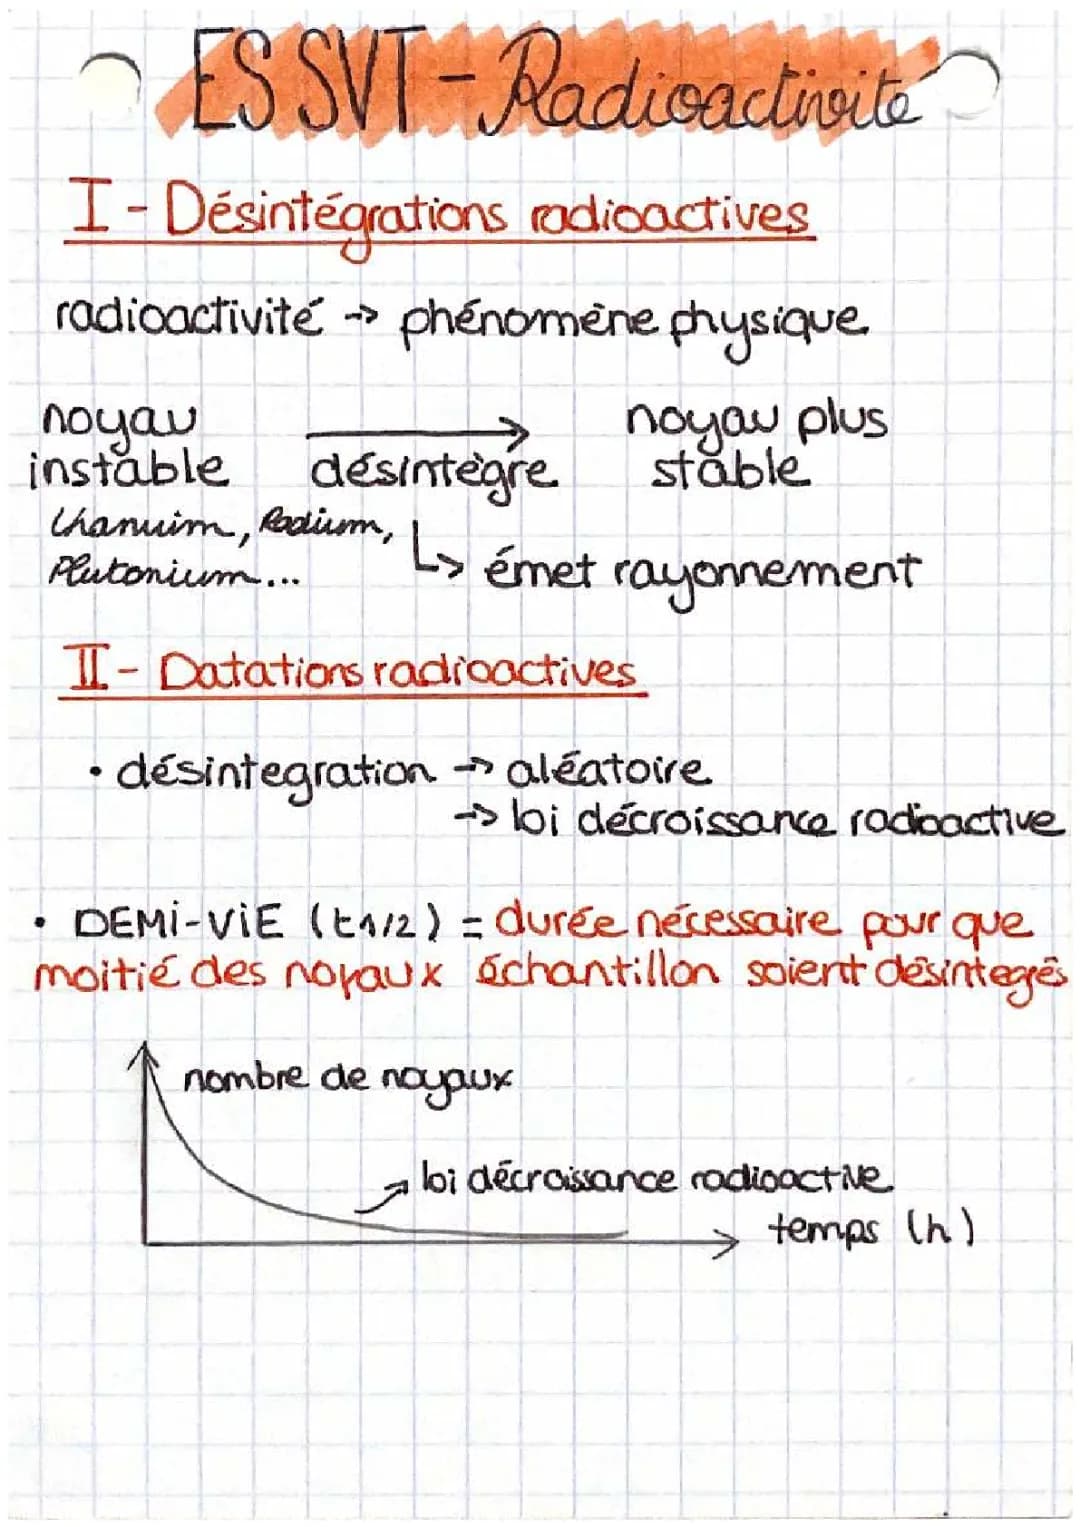 ES SVT - Radioactivité
I - Désintégrations radioactives
radioactivité → phénomène physique
noyau instable → désintègre noyau plus stable
Uranuim, Radium,
Plutonium...
↳ émet rayonnement
II - Datations radioactives
• désintegration → aléatoire
→ loi décroissance radioactive
• DEMI-VIE (t1/2) = durée nécessaire pour que
moitié des noyaux échantillon soient désintegrés
nombre de noyaux
loi décroissance radioactive
temps (h)